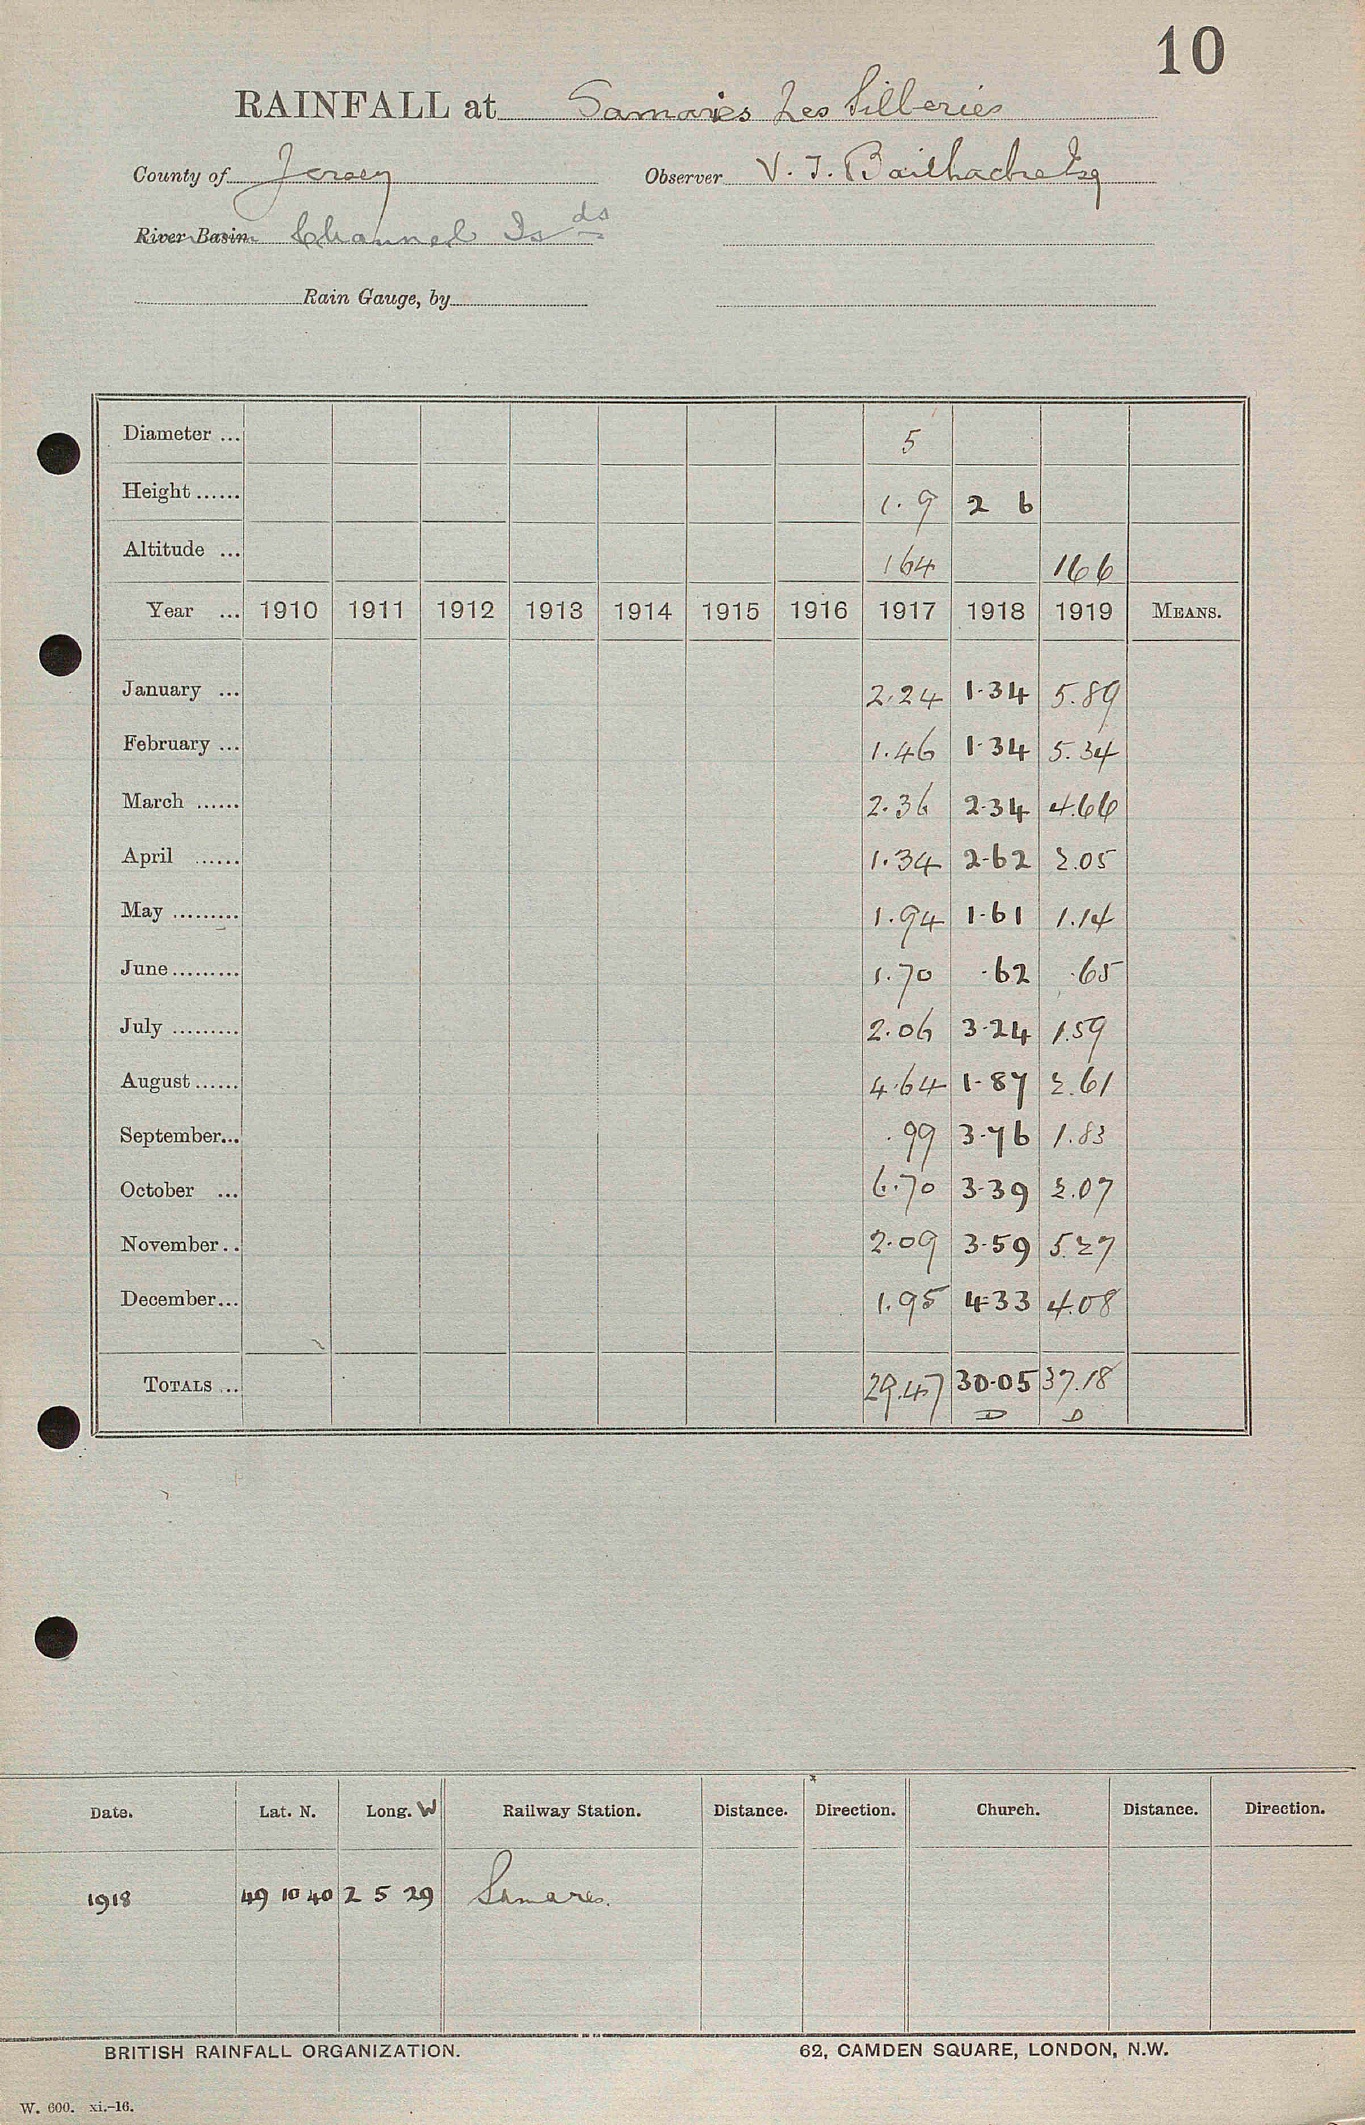 10
RAINFALL at Samares Les Silleries
County of Jersey Observer V. J. Bailhache Esq
River Basin Channel Is ds
Rain Gauge, by
Diameter ... 5
Height ...... 1.9 2 6
Altitude ... 164 166
Year ... 1910 1911 1912 1913 1914 1915 1916 1917 1918 1919 MEANS.
January ... 2.24 1.34 5.89
February ... 1.46 1.34 5.34
March ...... 2.36 2.34 4.66
April ...... 1.34 2.62 2.05
May ......... 1.94 1.61 1.14
June ......... 1.70 .62 .65
July ......... 2.06 3.24 1.59
August ...... 4.64 1.87 2.61
September... .99 3.76 1.83
October ... 6.70 3.39 2.07
November .. 2.09 3.59 5.27
December... 1.95 4.33 4.08
TOTALS ... 29.47 30.05 37.18
D D
Date. Lat. N. Long. W Railway Station. Distance. Direction. Church. Distance. Direction.
1918 49 10 40 2 5 29 Samares.
BRITISH RAINFALL ORGANIZATION. 62, CAMDEN SQUARE, LONDON, N.W.
W. 600. xi.-16.